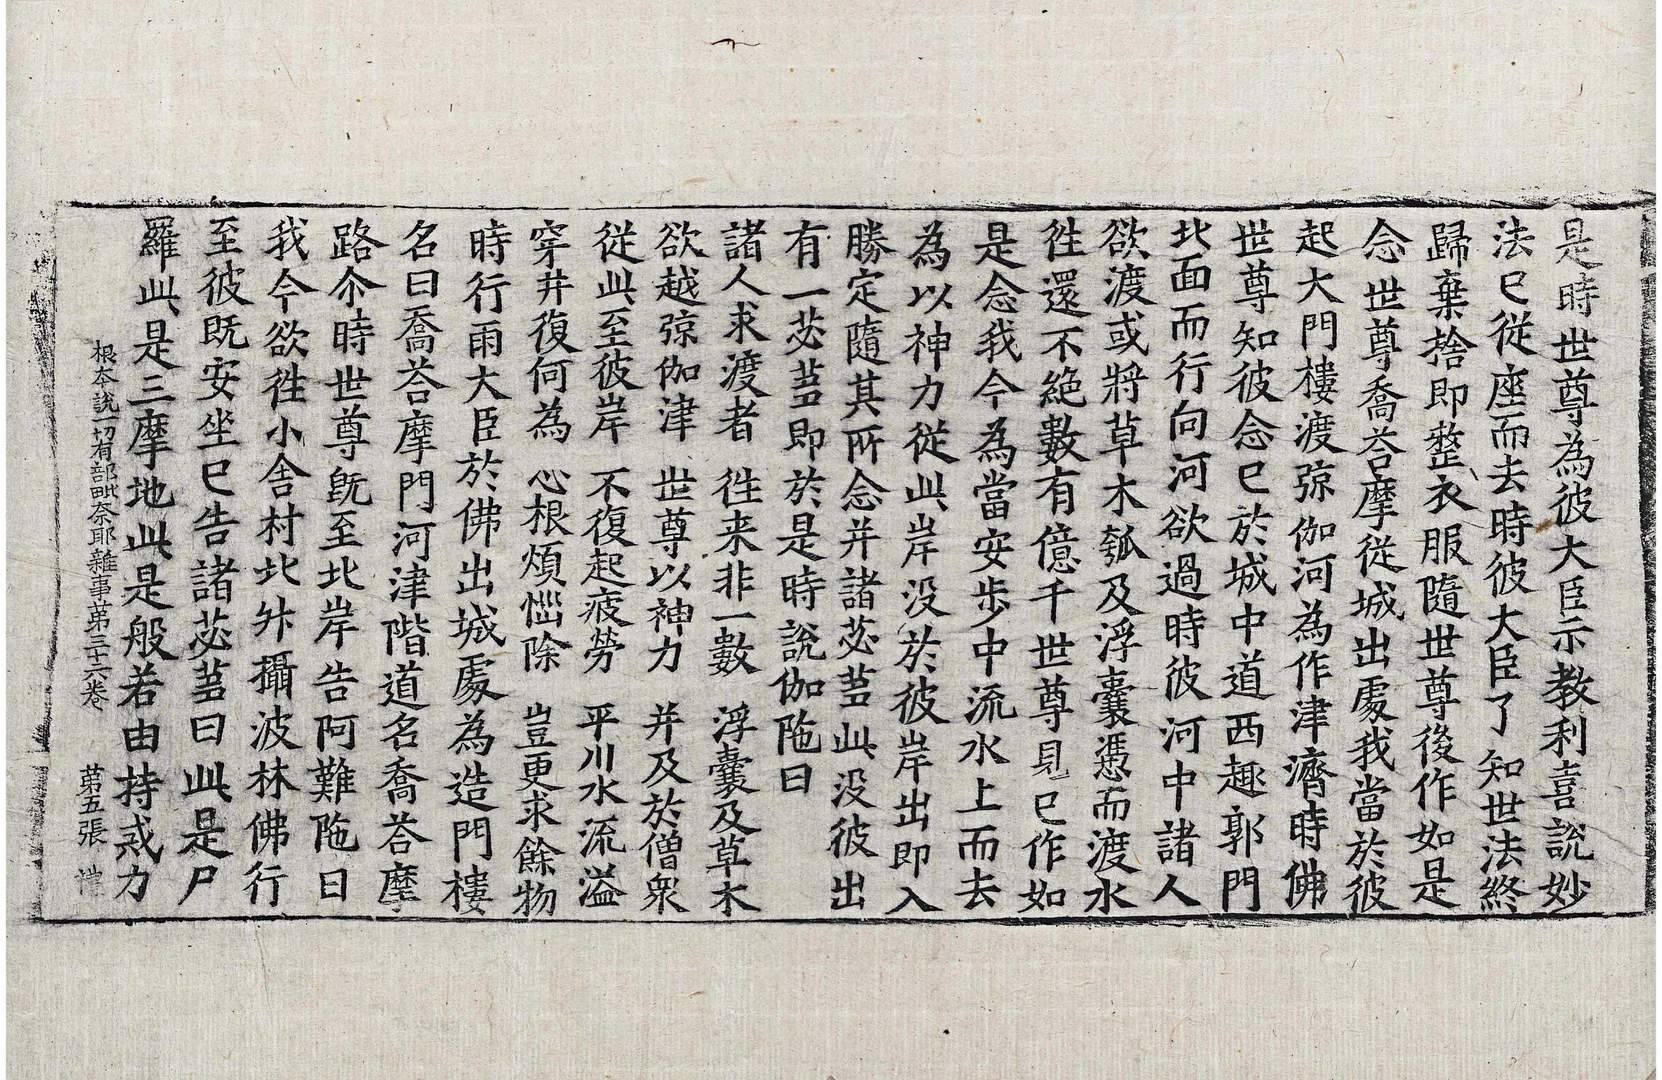 是時世尊為彼大臣示教利喜說妙
法已從座而去時彼大臣了知世法終
歸棄捨即整衣服隨世尊後作如是
念世尊喬荅摩從城出處我當於彼
起大門樓渡弶伽河為作津濟時佛
世尊知彼念已於城中道西趣郭門
北面而行向河欲過時彼河中諸人
欲渡或將草木瓠及浮囊憑而渡水
徃還不絶數有億千世尊見已作如
是念我今為當安步中流水上而去
為以神力從此岸没於彼岸出即入
勝定隨其所念并諸苾蒭此没彼出
有一苾蒭即於是時說伽陁曰
諸人求渡者 徃来非一數 浮囊及草木
欲越弶伽津 世尊以神力 并及於僧衆
從此至彼岸 不復起疲勞 平川水流溢
穿井復何為 心根煩惱除 豈更求餘物
時行雨大臣於佛出城處為造門樓
名曰喬荅摩門河津階道名喬荅摩
路尒時世尊既至北岸告阿難陁曰
我今欲徃小舍村北升攝波林佛行
至彼既安坐已告諸苾蒭曰此是尸
羅此是三摩地此是般若由持戒力
根本說一切有部毗奈耶雜事第三十六卷 第五張